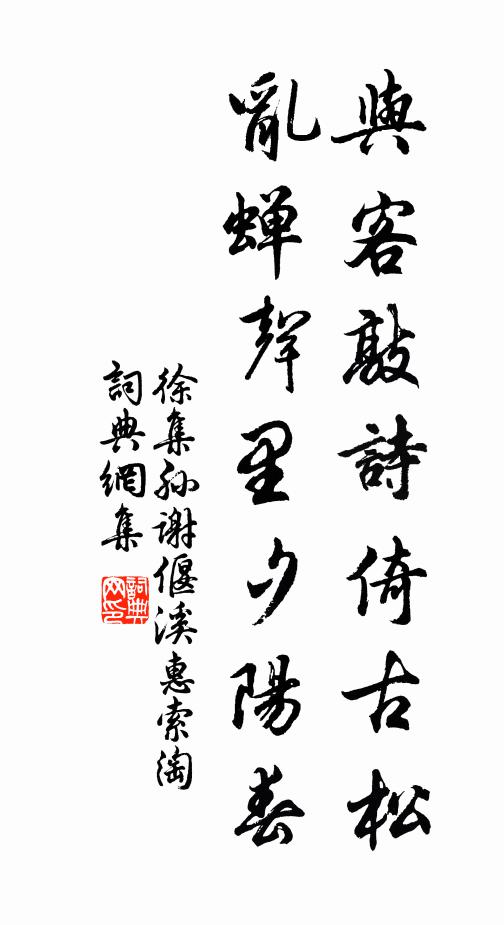 與客敲詩倚古松
亂蟬聲里夕陽舂
徐集孫謝偃溪惠索淘
詞典網集
詞典網印